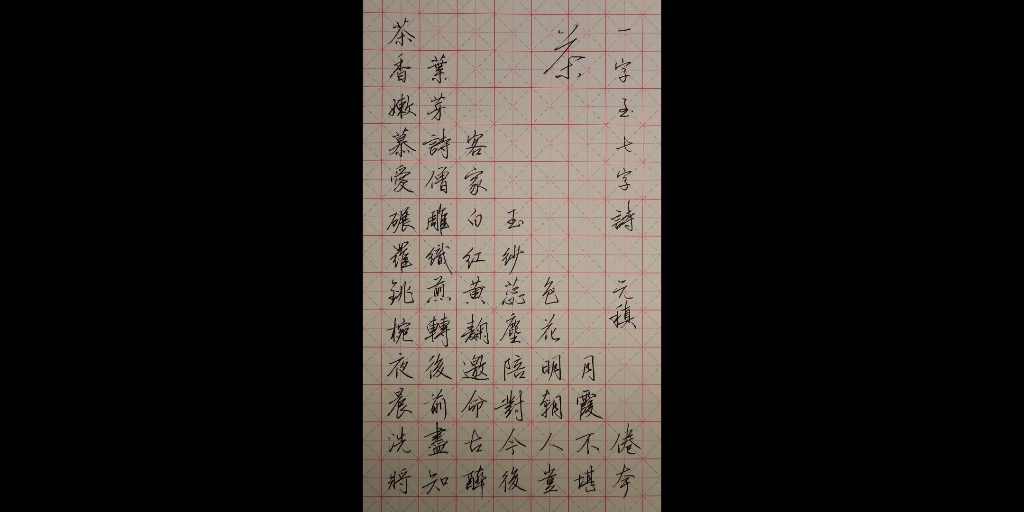 一字至七字詩 元稹
茶
茶
香葉
嫩芽
慕詩客
愛僧家
碾雕白玉
羅織紅紗
銚煎黃蕊色
椀轉麴塵花
夜後邀陪明月
晨前命對朝霞
洗盡古今人不倦
將知醉後豈堪夸